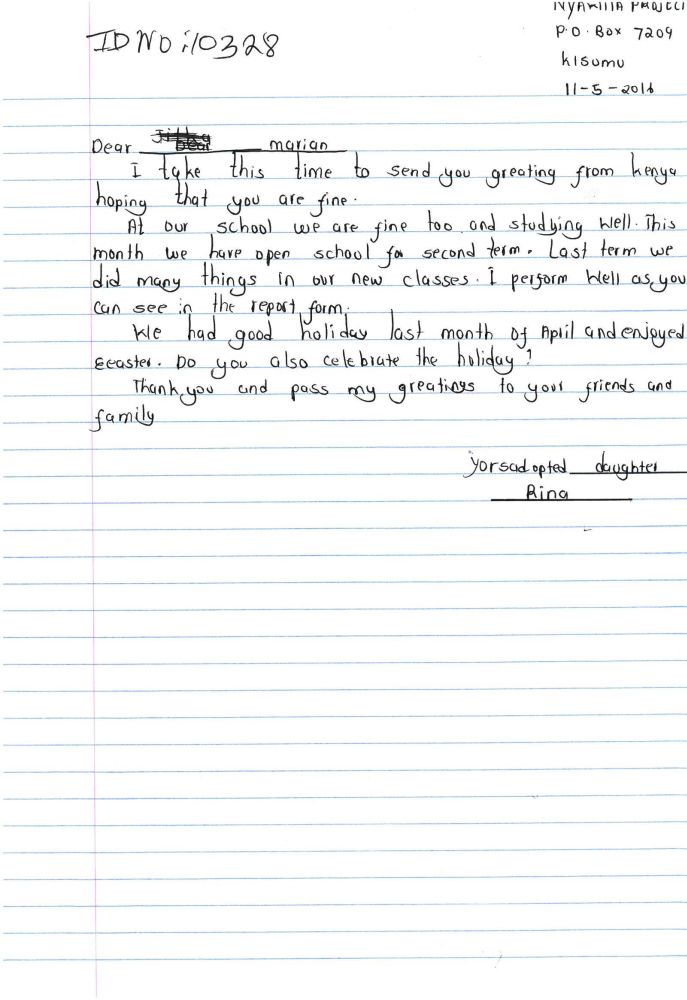 PROJECT
ID No :10328
P.O. Box 7209
KISUMU
11-5-2016
Dear marian
I take this time to send you greating from kenya
hoping that you are fine.
At our school we are fine too and studying well. This
month we have open school for second term. Last term we
did many things in our new classes. I perform well as you
can see in the report form.
We had good holiday last month of April and enjoyed
Eeaster. Do you also celebrate the holiday?
Thank you and pass my greatings to your friends and
family
yorsadopted daughter
Rina